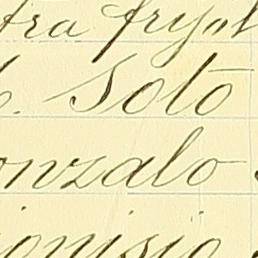 tra fryol
. Soto
onzalo
ionisio